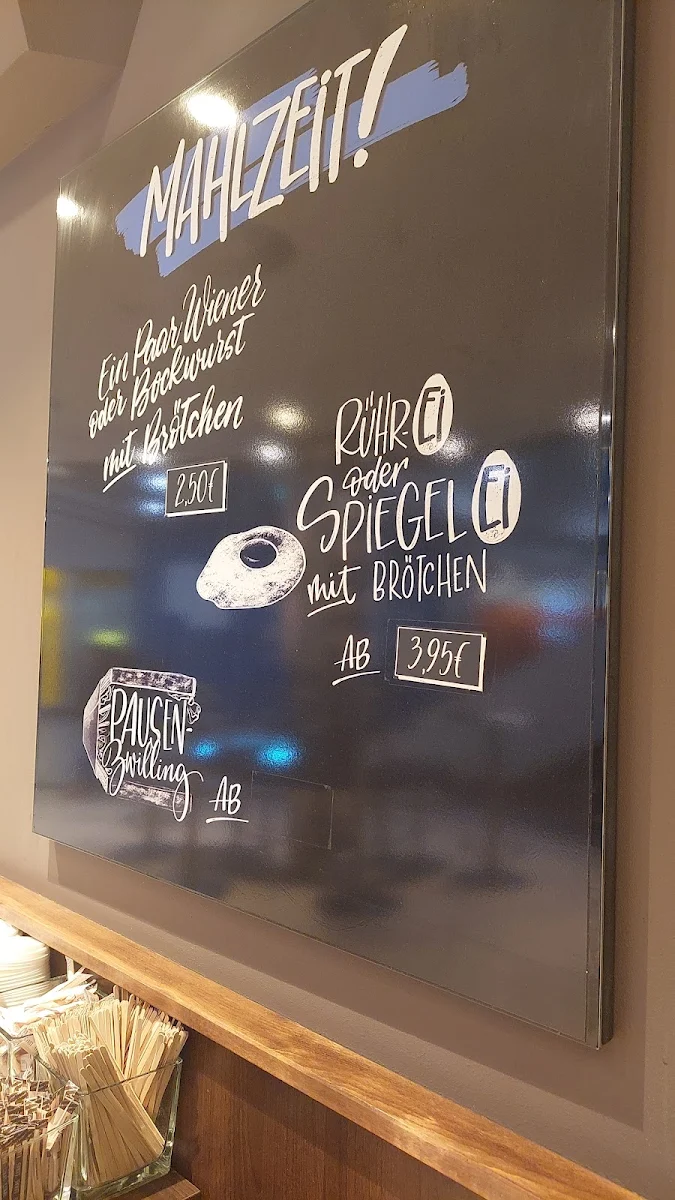 MAHLZEIT!
Ein Paar Wiener
oder Bockwurst
mit Brötchen
2,50€
RÜHR-Ei
oder
SPIEGEL Ei
mit BRÖTCHEN
AB 3,95€
PAUSEN-
Zwilling
AB